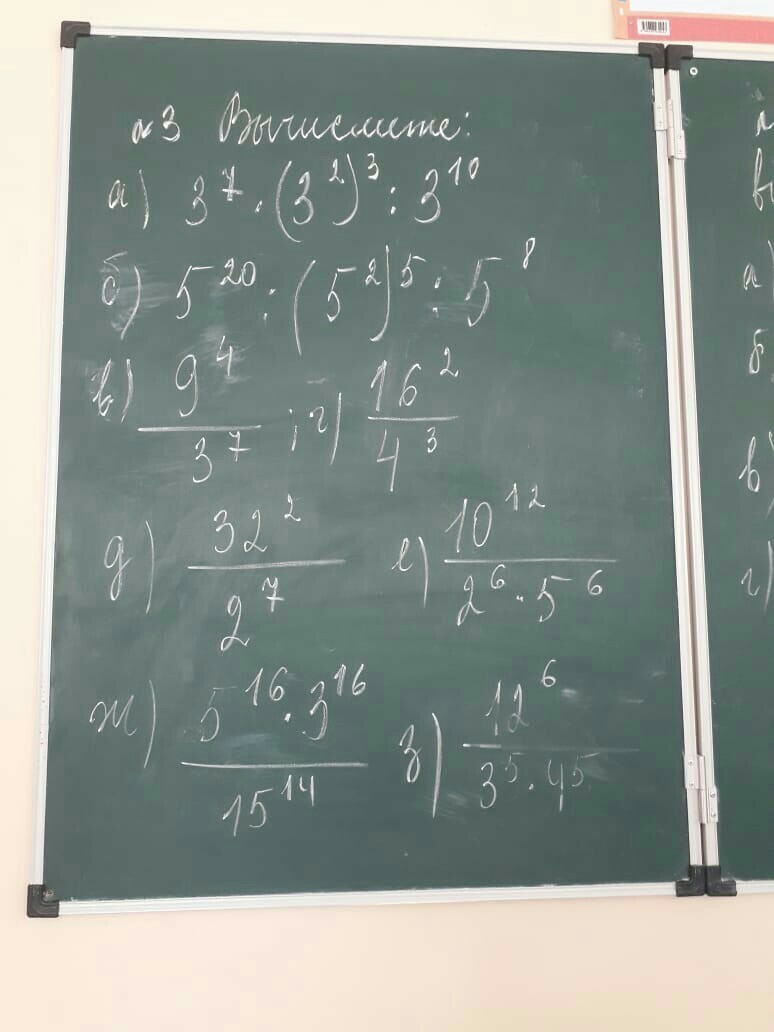 №3 Вычислите:
а) 3⁷ · (3²)³ : 3¹⁰
б) 5²⁰ : (5²)⁵ : 5⁸
в) 9⁴/3⁷ ; г) 16²/4³
д) 32²/2⁷ е) 10¹²/2⁶ · 5⁶
ж) 5¹⁶ · 3¹⁶/15¹⁴ з) 12⁶/3⁵ · 4⁵
а)
б
в)
г)